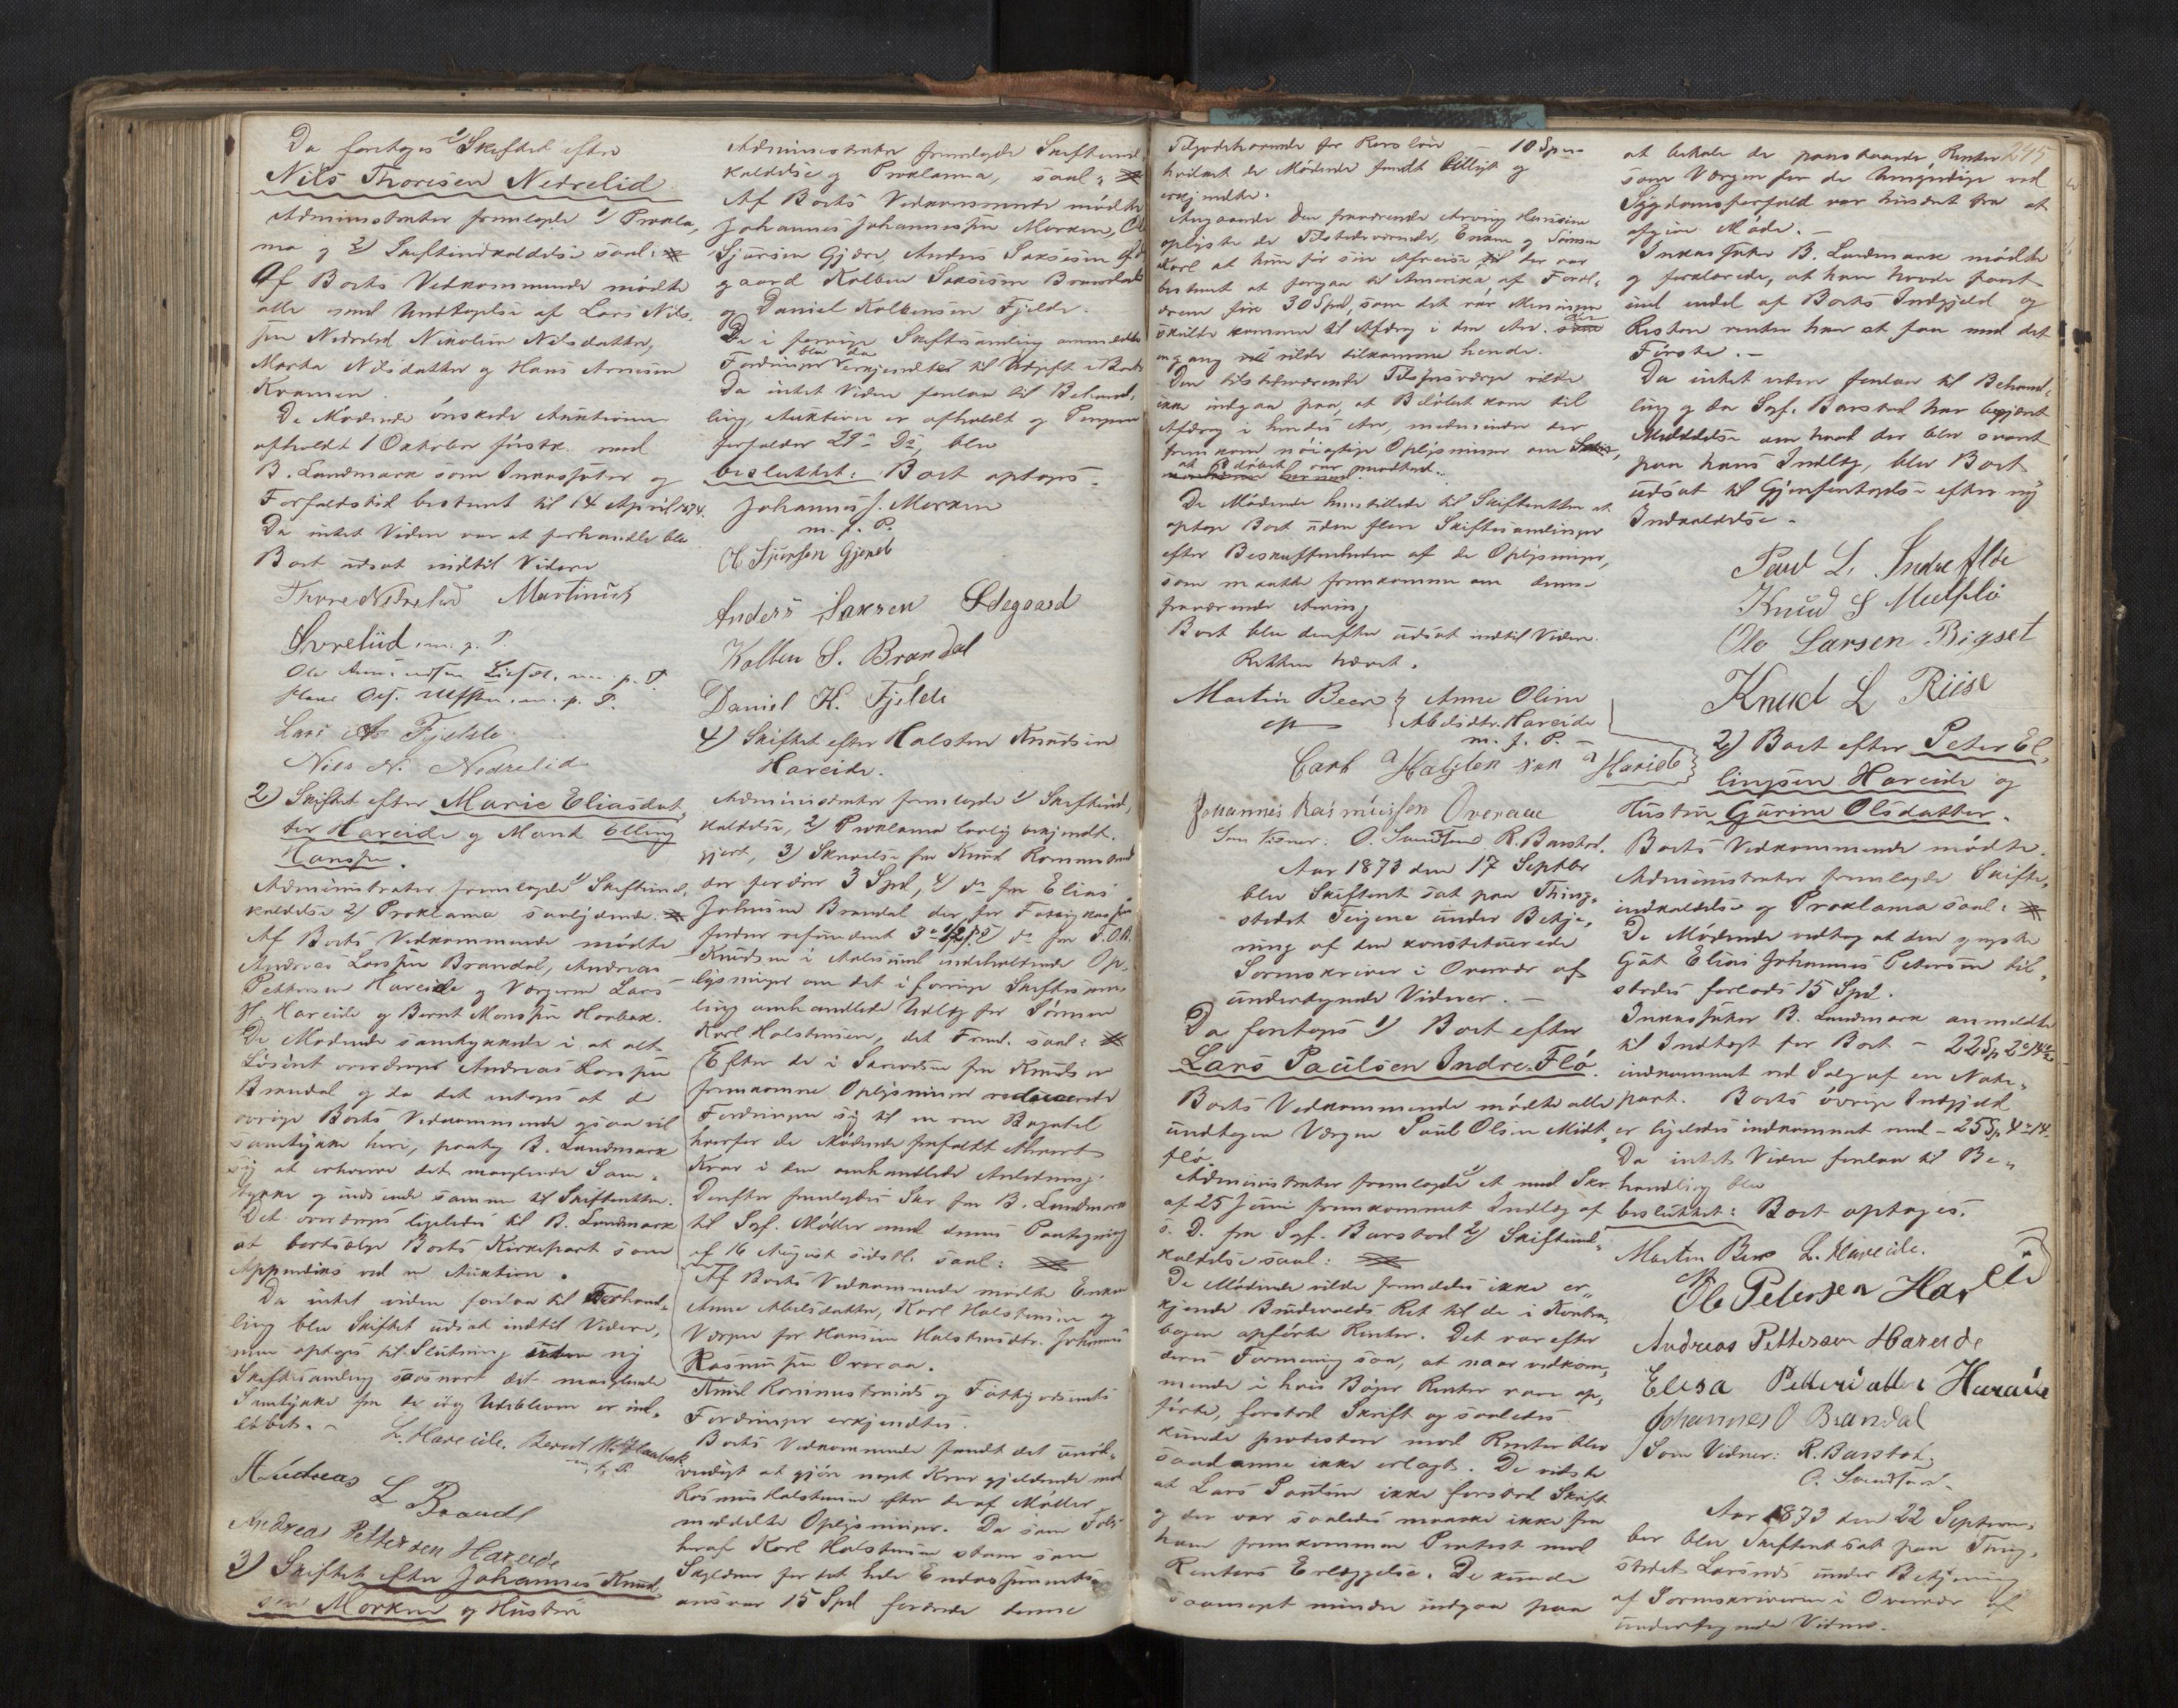 Da foretoges 1/ Skiftet efter
Nils Thoresen Nedrelid.
Administrator fremlagde 1/ Prokla-
ma og 2/ Skifteindkaldelse saal:
Af Boets Vedkommende mødte
alle med Undtagelse af Lars Nils-
sen Nedrelid Nikoline Nilsdatter,
Marta Nilsdatter og Hans Arnesen
De Mødende ønskede Auktionen
afholdt 1 Oktober førstk. med
B. Landmark som Inkassator og
Forfaldstid bestemt til 14 April 1874.
Da intet Videre var at forhandle blev
Boet udsat indtil Videre
Thore Nedrelid Martinus
m. p. P.
Ole m. p. P.
Hans m. p. P.
Lars A Fjelde
Nils N. Nedrelid
2) Skiftet efter Marie Eliasdat-
ter Hareide og Mand Elling
Hanssen.
Administrator fremlagde 1/ Skifteind-
kaldelse 2/ Proklama saalydende:
Af Boets Vedkommende mødte
Andreas Larssen Brandal, Andreas
Pettersen Hareide og Værgerne Lars
H. Hareide og Bernt Monssen Haabak.
De Mødende samtykkede i at alt
Løsøret overdroges Andreas Larssen
Brandal og da det antoges at de
øvrige Boets Vedkommende ogsaa vil
samtykke heri, paatog B. Landmark
sig at erhverve det manglende Sam-
tykke og indsende samme til Skifteretten.
Det overdroges ligeledes til B. Landmark
at bortsælge Boets Kirkepart som
Appendiks ved en Auktion.
Da intet videre forelaa til Behand-
ling blev Skiftet udsat indtil Videre,
men optoges til Slutning uden ny
Skiftesamling saasnart det manglende
Samtykke fra de øvrige Udeblevne er ind-
løbet.
L. Hareide. Bernt M. Haabak
m. p. P.
Andreas L Brandl
Andreas Pettersen Hareide
3) Skiftet efter Johannes Knud-
sen Morken og Hustru
Administrator fremlagde Skifteind-
kaldelse og Proklama, saal:
Af Boets Vedkommende mødte
Johannes Johannessen Morken, Ole
Sjursen Gjerde, Anders Saksesen Øde-
gaard Kolben Saksesen Brandal
og Daniel Kolbensen Fjelde.
De i forrige Skiftesamling anmeldte
Fordringer blev da erkjendte til Udgift i Boet
Da intet Videre forelaa til Behand-
ling, Auktion er afholdt og Pengene
forfalder 29de Ds, blev
besluttet: Boet optages.
Johannes J. Morken
m. p. P.
O Sjursen Gjerde
Anders Saksen Ødegaard
Kolben S. Brandal
Daniel K. Fjelde
4) Skiftet efter Halsten Knudsen
Hareide.
Administrator fremlagde 1/ Skifteind-
kaldelse, 2/ Proklama lovlig bekjendt-
gjort, 3/ Skrivelse fra Knud
der fordrer 3 Spd, 4/ do fra Elias
Johnsen Brandal der for Fattigkassen
do fra P.O.A.
Knudsen i Aalesund indeholdende Op-
lysninger om det i forrige Skiftesam-
ling omhandlede Udlæg for Sønnen
Karl Halstensen, det Freml. saal:
Efter de i Skrivelsen fra Knudsen
fremkomne Oplysninger reducerede
Fordringen sig til en ren Bagatel
hvorfor de Mødende frafaldt ethvert
Krav i den omhandlede Anledning.
Derefter fremlagdes Skr. fra B. Landmark
til Sgf. Møller med dennes Paategning
af 16 August sidstl. saal:
Af Boets Vedkommende mødte Enken
Anne Abelsdatter, Karl Halstensen og
Værgen for Hansine Halstensdtr. Johannes
Rasmussen Overaa.
Knud Rommestrands og Fattigvæsenets
Fordringer erkjendtes.
Boets Vedkommende fandt det unød-
vendigt at gjøre noget Krav gjeldende mod
Rasmus Halstensen efter de af Møller
meddelte Oplysninger. Da som Følge
heraf Karl Halstensen staar som
Skyldner for det hele
ansvar 15 Spd fordrede denne
Tilgodehavende for - 10 Spd
hvilket de Mødende fandt billigt og
erkjendte.
Angaaende den fraværende Arving Hansine
oplyste de Tilstedeværende, Enken og Sønnen
Karl at hun før sin Afreise til der var
bestemt at forgaa til Amerika, af Foræl-
drene fik 30 Spd, som det var Meningen
skulde komme til Afdrag i den Arv der
engang vilde tilkomme hende.
Den tilstedeværende Tilsynsværge vilde
ikke indgaa paa, at Beløbet kom til
Afdrag i hendes Arv, medmindre der
fremkom nøiagtige Oplysninger om
at Beløbet var modtaget.
De Mødende henstillede til Skifteretten at
optage Boet uden flere Skiftesamlinger
efter Beskaffenheden af de Oplysninger,
som maatte fremkomme om denne
fraværende Arving
Boet blev derefter udsat indtil Videre.
Retten hævet.
Martin Beer Anne Oline
cst Abelsdtr. Hareide
m. p. P.
Carl Halsten sen Hareide
Johannes Rasmussen Overaae
Som Vidner: O. Sandsund R. Barstad.
Aar 1873 den 17 Septbr
blev Skifteret sat paa Thing-
stedet Teigene under Betje-
ning af den konstituerede
Sorenskriver i Overvær af
undertegnede Vidner.
Da foretoges 1) Boet efter
Lars Paulsen Indre Flø.
Boets Vedkommende mødte alle
undtagen Værgen Paul Olsen Midt-
flø.
Administrator fremlagde 1/ et med Skr.
af 25 Juni fremkommet Indlæg af
s. D. fra Sgf. Barstad 2/ Skifteind-
kaldelse saal:
De Mødende vilde fremdeles ikke er-
kjende Budevolds Ret til de i Kontra-
bogen opførte Renter. Det var efter
deres Formening saa, at naar vedkom-
mende i hvis Bøger Renter vare op-
førte, forstod Skrift og saaledes
kunde protestere mod Renter blev
saadanne ikke erlagt. De vidste
at Lars Paulsen ikke forstod Skrift
og der var saaledes maaske ikke fra
ham fremkommen Protest mod
Renters Erlæggelse. De kunde
saameget mindre indgaa paa
245
at betale de paastaaede Renter
som Værgen for de Umyndige ved
Sygdomsforfald var hindret fra at
afgive Møde.
Inkassator B. Landmark mødte
og forklarede, at han havde faaet
ind endel af Boets Indgjeld og
Resten venter han at faa med det
Første.
Da intet videre forelaa til Behand-
ling og da Sgf. Barstad har begjært
Meddelelse om hvad der blev svaret
paa hans Indlæg, blev Boet
udsat til Gjenforetagelse efter ny
Indkaldelse.
Paul L. Indreflø
Knud S Midtflø
Ole Larsen Rigset
Knud L Riise
2) Boet efter Peter El-
lingsen Hareide og
Hustru Gurine Olsdatter.
Boets Vedkommende mødte.
Administrator fremlagde Skifte-
indkaldelse og Proklama saal:
De Mødende vedtog at den yngste
Gut Elias Johannes Petersen til-
stedes forlods 15 Spd.
Inkassator B. Landmark anmeldte
til Indtægt for Boet - 22 Sp
indkommet ved Salg af en Note-
part. Boets øvrige Indgjeld
er ligeledes indkommet med - 25 Sp
Da intet Videre forelaa til Be-
handling blev
besluttet: Boet optages.
Martin Beer L. Hareide.
Ole Petersen Hareide
Andreas Pettersen Hareide
Elisa Petterdatter Hareide
Johannes O Brandal
Som Vidner: R. Barstad,
Aar 1873 den 22 Septem-
ber blev Skifteret sat paa Thing-
stedet Larsnes under Betjening
af Sorenskriveren i Overvær af
undertegnede Vidner.